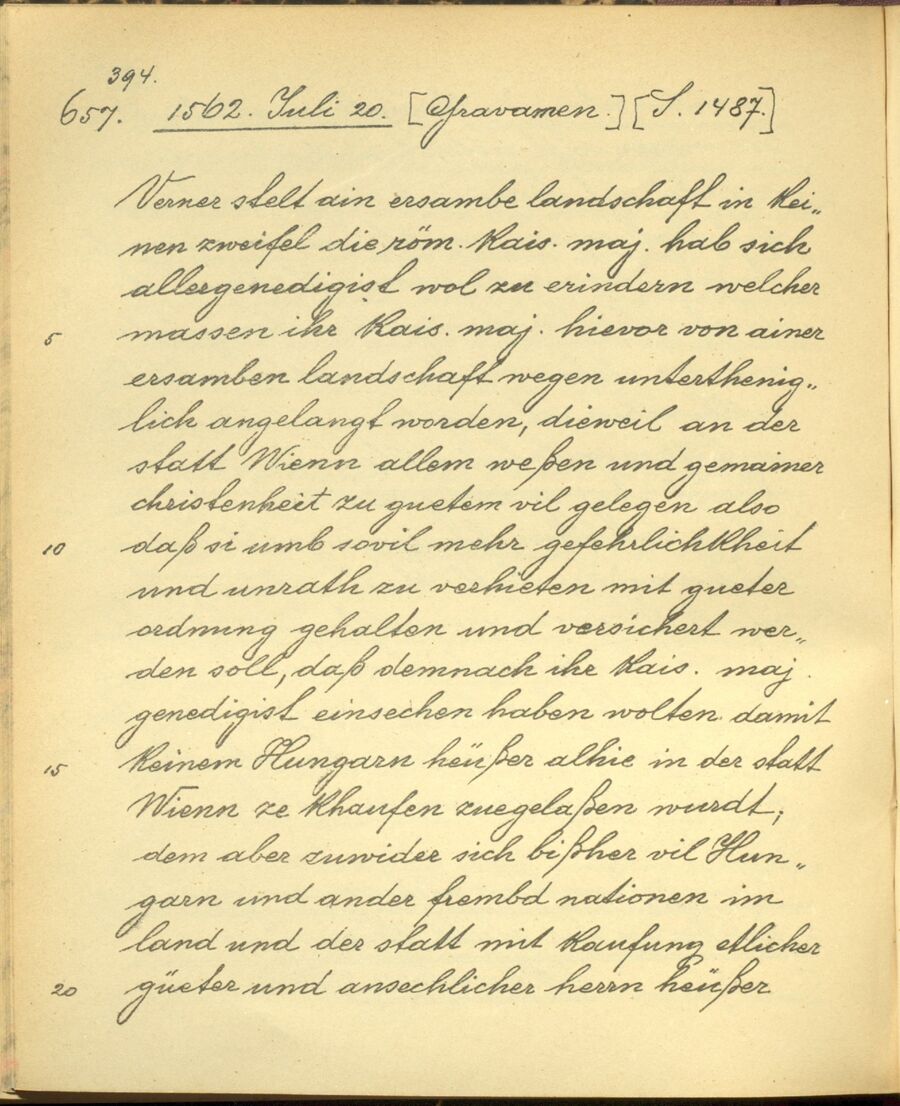 394.
657. 1562. Juli 20. [Gravamen.] [S. 1487.]
Verner stelt ain ersambe landschaft in kei„
nen zweifel die röm. kais. maj. hab sich
allergenedigist wol zu erindern welcher
5 massen ihr kais. maj. hievor von ainer
ersamben landschaft wegen unterthenig„
lich angelangt worden, dieweil an der
statt Wienn allem weßen und gemainer
christenheit zu guetem vil gelegen also
10 daß si umb sovil mehr gefehrlichkheit
und unrath zu verhieten mit gueter
ordnung gehalten und versichert wer„
den soll, daß demnach ihr kais. maj.
genedigist einsechen haben wolten damit
15 keinem Hungarn heüßer alhie in der statt
Wienn ze khaufen zuegelaßen wurdt;
dem aber zuwider sich bißher vil Hun„
garn und ander frembd nationen im
land und der statt mit kaufung etlicher
20 güeter und ansechlicher herrn heüßer